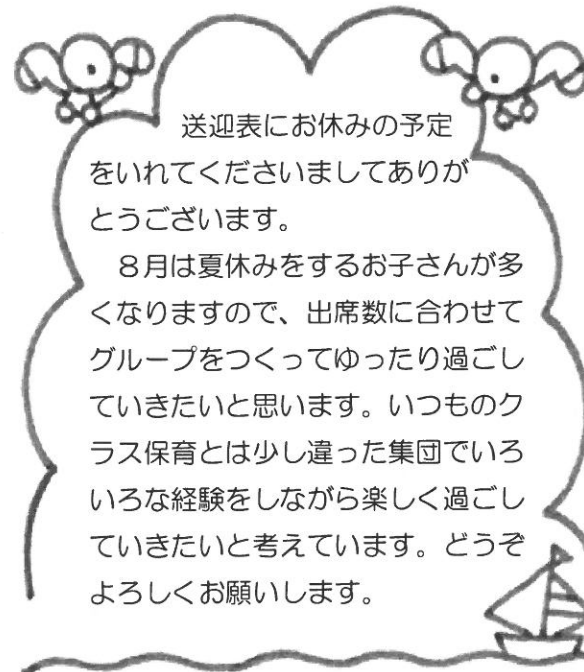 送迎表にお休みの予定
をいれてくださいましてありが
とうございます。
８月は夏休みをするお子さんが多
くなりますので、出席数に合わせて
グループをつくってゆったり過ごし
ていきたいと思います。いつものク
ラス保育とは少し違った集団でいろ
いろな経験をしながら楽しく過ごし
ていきたいと考えています。どうぞ
よろしくお願いします。